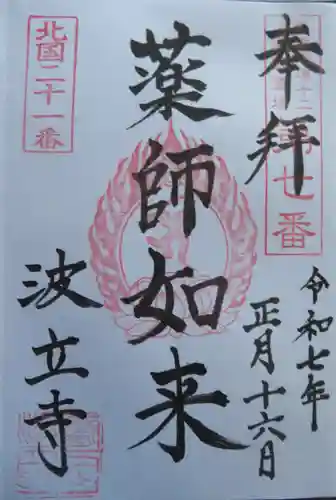 奉拝
第七番
令和七年
正月十六日
薬師如来
北国二十一番
波立寺